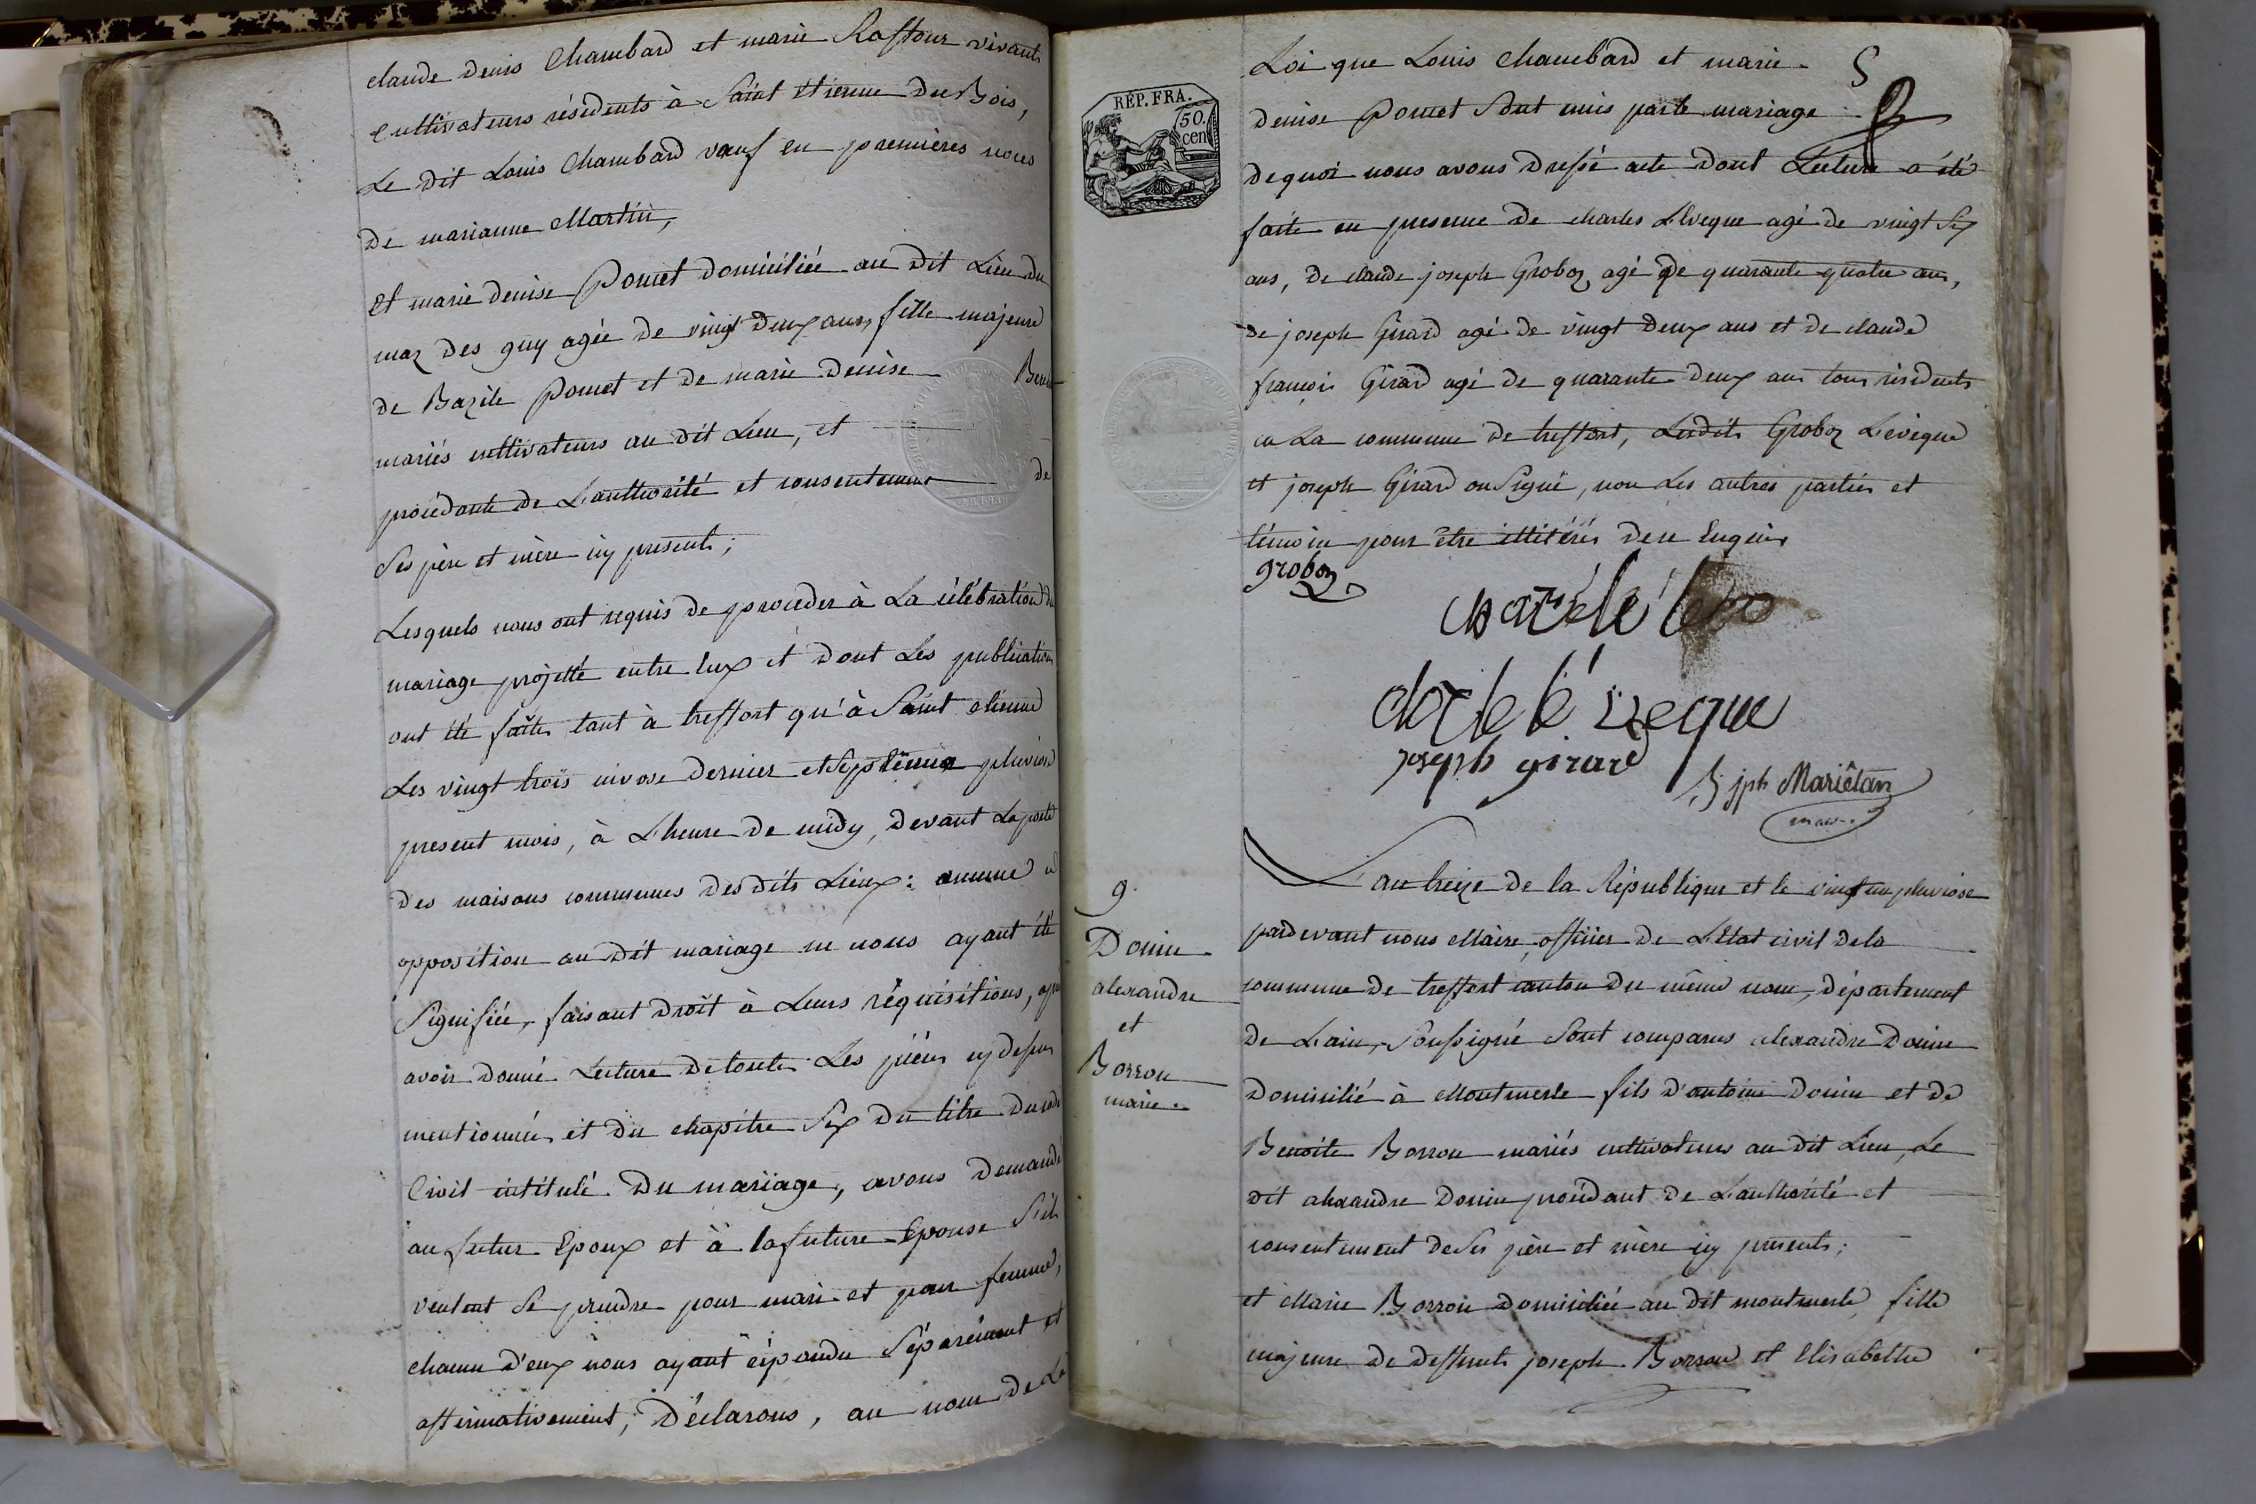 claude denis Chambard et marie Raffour vivants
cultivateurs résidents à Saint étienne Du Bois,
Le dit Louis Chambard vœuf en premières noces
de marianne Martin,
et marie denise Pomet domiciliée au dit Lieu du
maz des guy agée de vingt deux ans, fille majeure
de Bazile Pomet et de marie denise
mariés cultivateurs au dit Lieu, et
procédante de L'autthorité et consentement de
Ses père et mère icy présents;
Lesquels nous ont requis de proceder à La célébration du
mariage projetté entre Eux et dont Les publications
ont été faites tant à treffort qu'à Saint etienne
Les vingt trois nivose dernier et Septième pluviose
present mois, à L'heure de midy, devant La porte
des maisons communes des dits Lieux: aucune
opposition au dit mariage ne nous ayant été
Signifiée, faisant droit à Leurs réquisitions, après
avoir donné Lecture de toutes Les pièces cy dessus
mentionnées et du chapitre Six du titre du code
Civil intitulé Du mariage, avons demandé
au futur Epoux et à la future Epouse S'ils
veulent Se prendre pour mari et pour femme,
chacun d'eux nous ayant répondu Séparément et
affirmativement, Déclarons, au nom de La
RÉP. FRA.
50.
cen
Loi que Louis Chambard et marie
denise Pomet Sont unis par le mariage
de quoi nous avons dressé acte dont Lecture a été
faite en presence de charles Lévêque agé de vingt Six
ans, de claude joseph Groboz agé de quarante quatre ans,
de joseph Girard agé de vingt deux ans et de claude
françois Girard agé de quarante deux ans tous résidents
en La commune de treffort, Lesdits Groboz Lévêque
et joseph Girard on Signé, non Les autres parties et
témoin pour être illitérés de ce Enquis
groboz
charle lé
charle lé veque
joseph girard
B jph Mariétan
maire
L'an treize de la République et le vingt un pluviose
pardevant nous Maire, officier de L'Etat civil de la
commune de treffort canton du même nom, département
de L'ain, Soussigné Sont comparus alexandre Donin
Domicilié à Montmerle fils d'antoine Donin et de
Benoite Borron mariés cultivateurs au dit Lieu, Le
dit alexandre Donin procédant de L'authorité et
consentement de Ses père et mère icy présents;
et Marie Borron domiciliée au dit montmerle, fille
majeure de deffunts joseph Borron et Elisabethe
9.
Donin
alexandre
et
Borron
marie